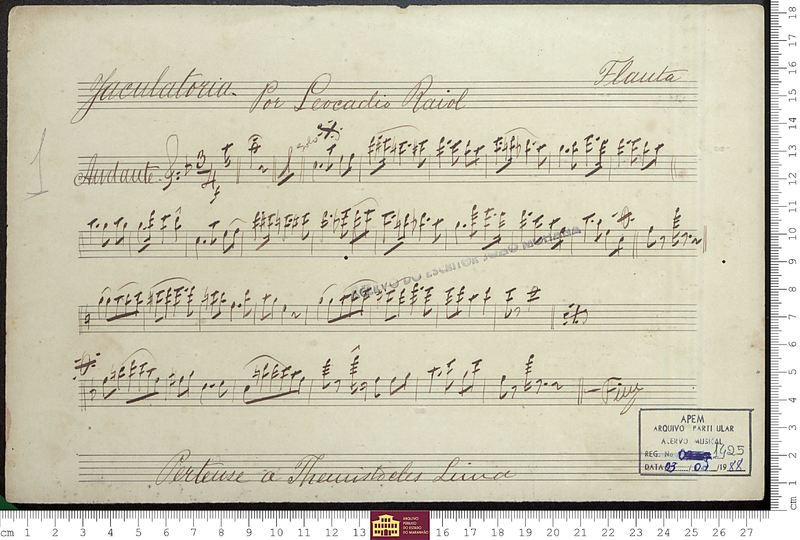 Jaculatoria.
Por Leocadio Raiol
Flauta
1
Andante.
3
4
Solo
ACERVO DO ESCRITOR JOÃO MOHANA
Fim
Pertense a Themistocles Lima
APEM
ARQUIVO PARTICULAR
ACERVO MUSICAL
REG. No 1425
DATA 03 / 07 / 1988
ARQUIVO
PÚBLICO
DO ESTADO
DO MARANHÃO
cm 1 2 3 4 5 6 7 8 9 10 11 12 13 16 17 18 19 20 21 22 23 24 25 26 27
cm 1 2 3 4 5 6 7 8 9 10 11 12 13 14 15 16 17 18